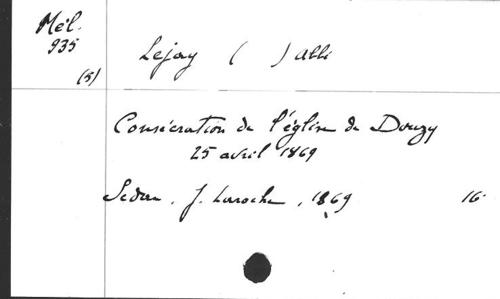 Mél.
935
(5)
Lejay ( ) abbé
Consécration de l'église de Douzy
25 avril 1869
Sedan, J. Laroche, 1869 16°